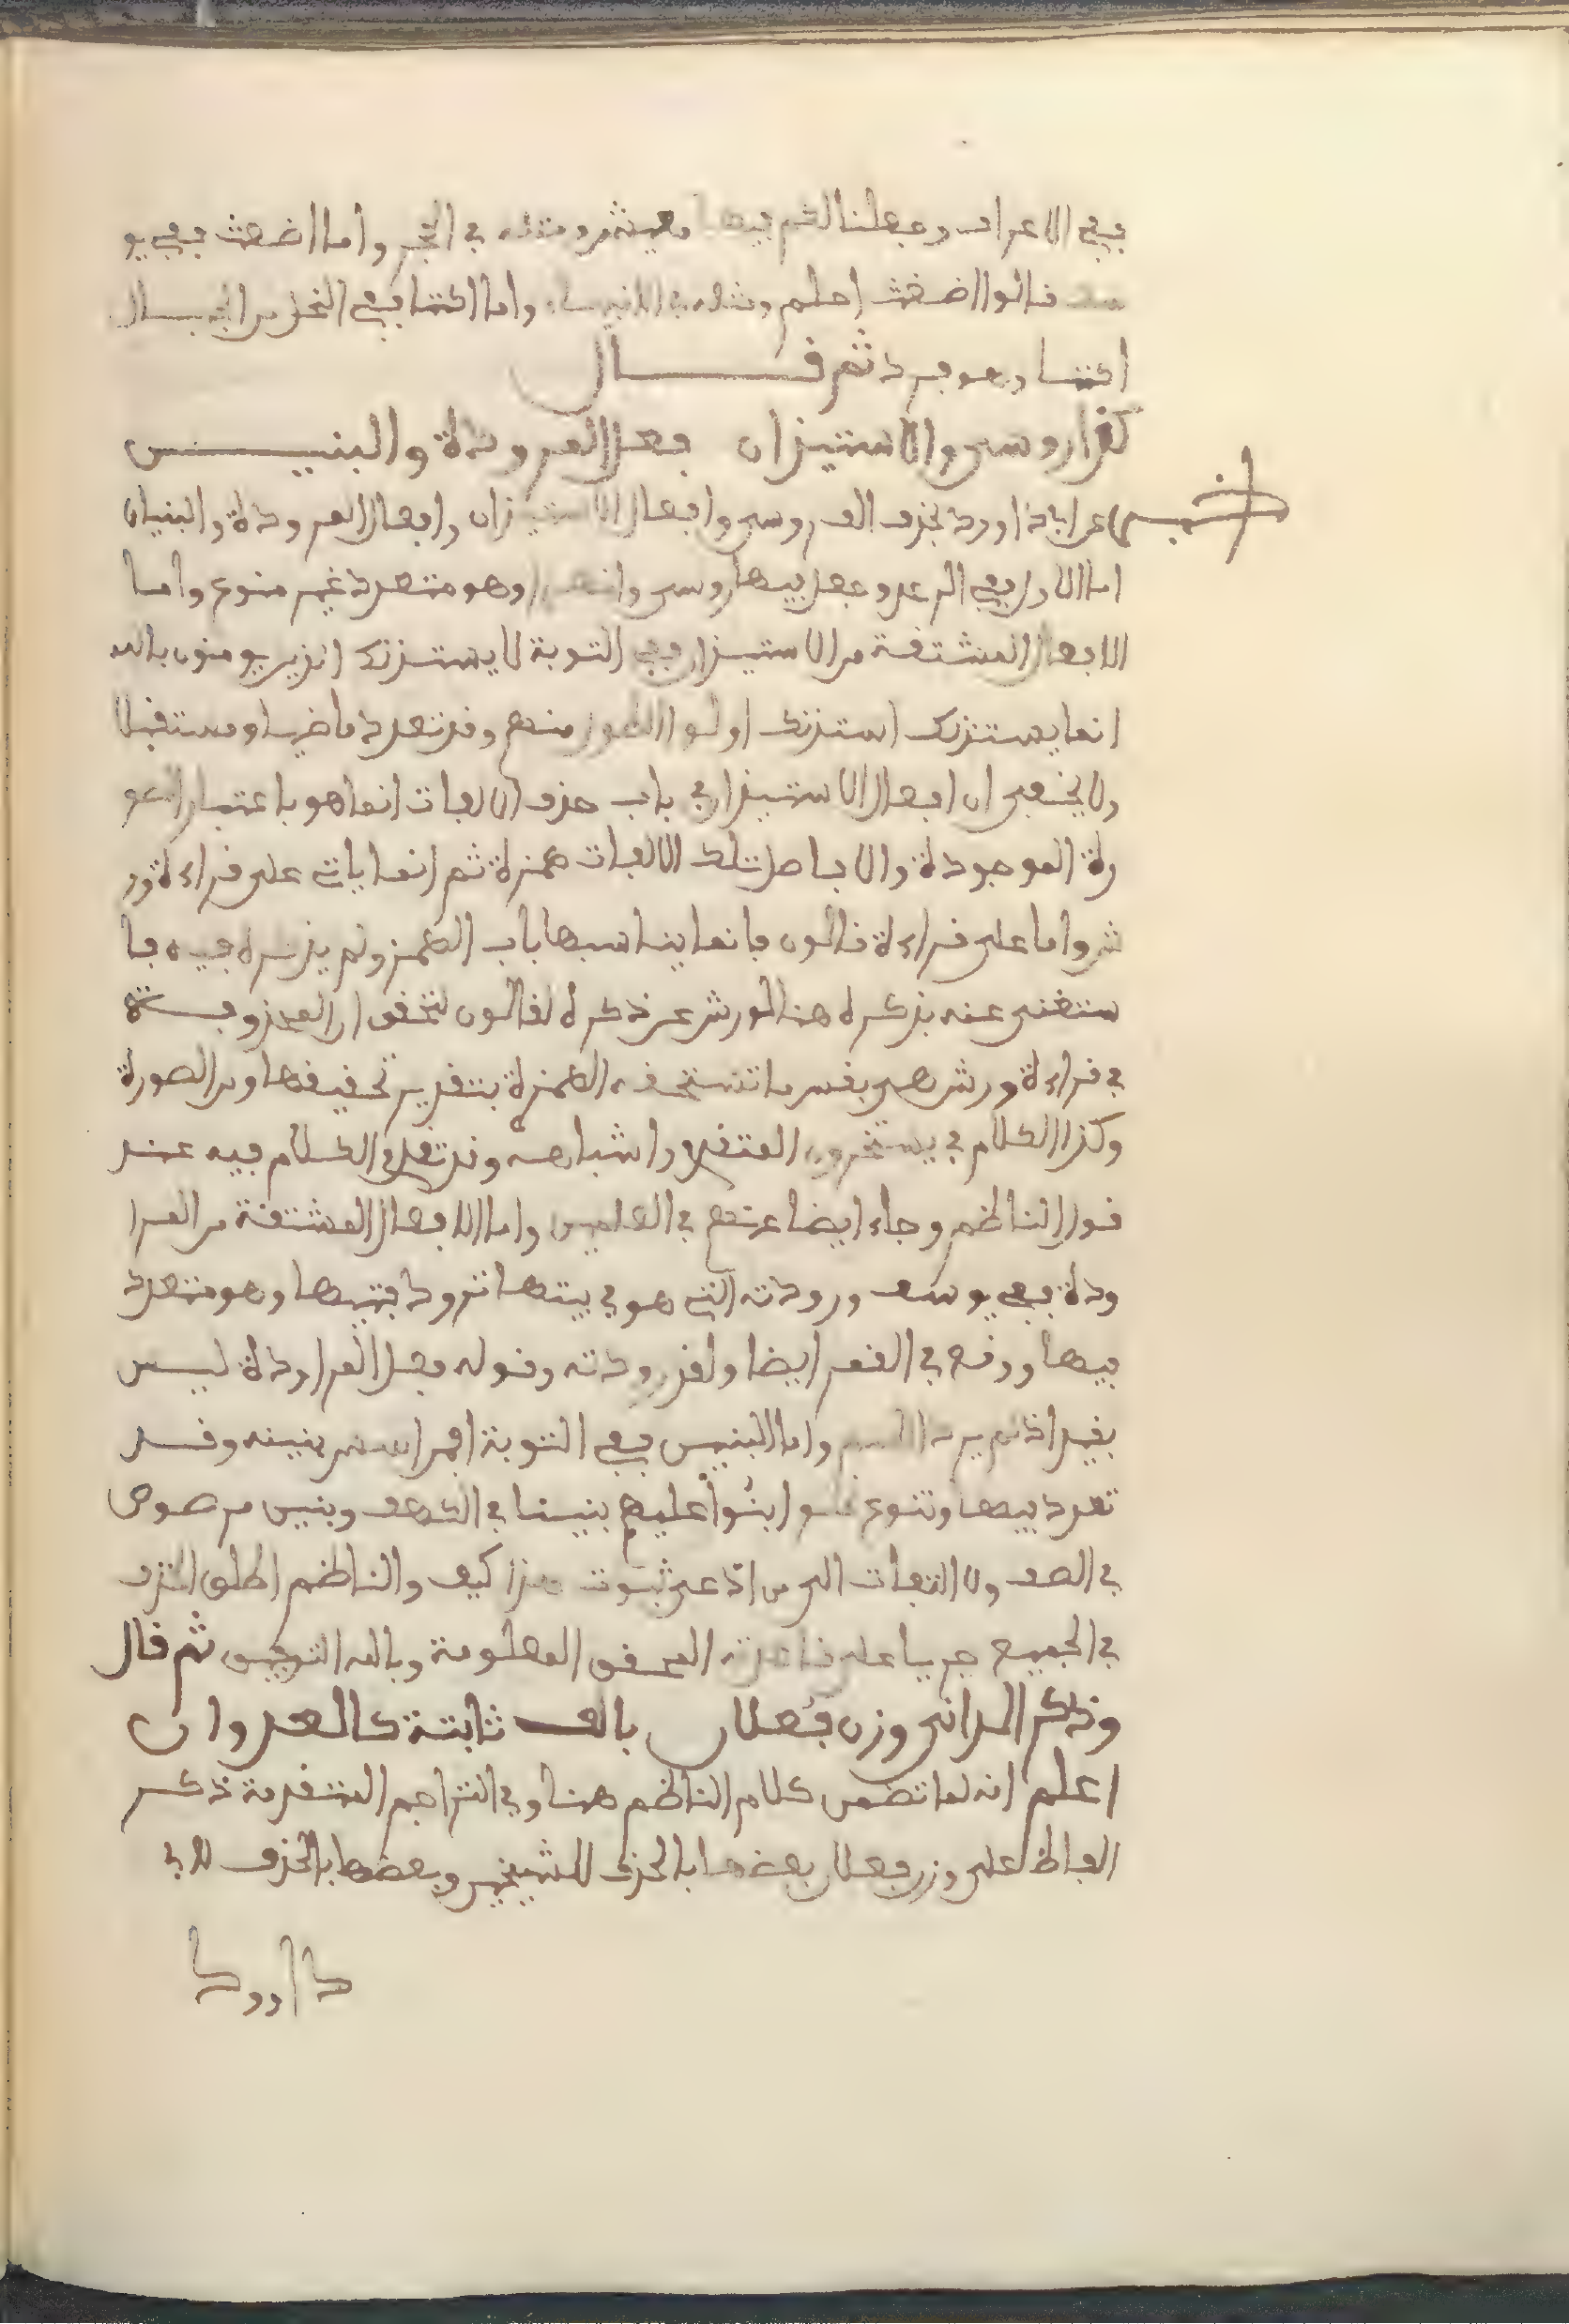 ففي الاعراف وجعلنا لكم فيها معيش ومثله في الحجر واما اضغث ففي يو
سف قالوا اضغث احلم ومثله في الانبياء واما اكننا ففي النحل من الجبال
اكننا وهو فرد ثم قـــــال
كذا رواسي والاستيذان فعل المرودة والبنيـــن
اخبر عن ابي داود بحذف الف رواسي وافعال الاستيذان وافعال المرودة والبنيان
اما الاول ففي الرعد وجعل فيها روسي وانهرا وهو متعدد غير منوع واما
الافعال المشتقة من الاستيذان ففي التوبة لا يستذنك الذين يومنون بالله
انما يستذنك استذنك اولوا الطول منهم وقد تعدد ماضيا ومستقبلا
ولا يخفى ان افعال الاستيذان في باب حذف الالفات انما هو باعتبار الصو
رة الموجودة والا فاصل تلك الالفات همزة ثم انما ياتي على قراءة ور
ش واما على قراءة قالون فانما يناسبها باب الهمز ولم يذكره فيه فا
ستغنى عنه بذكره هنا لورش عن ذكره لقالون لتحقق ان المحذوفــة
في قراءة ورش هي نفس ما تستحقه الهمزة بتقدير تخفيفها من الصورة
وكذا الكلام في يستخرون المتقدم واشباهه وقد تقدم الكلام فيه عند
قول الناظم وجاء ايضا عنهم في العلمين واما الافعال المشتقة من المرا
ودة ففي يوسف ورودته التي هو في بيتها ترود فتيها وهو متعدد
فيها ووقع في القمر ايضا ولقد رودته وقوله فعل المراودة ليس
بقيد اذ لم يرد الاسم واما البنين ففي التوبة افمن اسس بنينه وقــد
تعدد فيها وتنوع نحو ابنوا عليهم بنينا في الكهف وبنين مرصوص
في الصف ولا التفات الى من ادعى ثبوت هذا كيف والناظم اطلق الحذف
في الجميع جريا على قاعدته المحقق المعلومة وبالله التوفيق ثم قال
وذكر الداني وزن فعلان بالف ثابتة كالعدوان
اعلم انه لما تضمن كلام الناظم هنا وفي التراجم المتقدمة ذكــر
الفاظ على وزن فعلان بعضها بالحذف للشيخين وبعضها بالحذف لابي
داوود